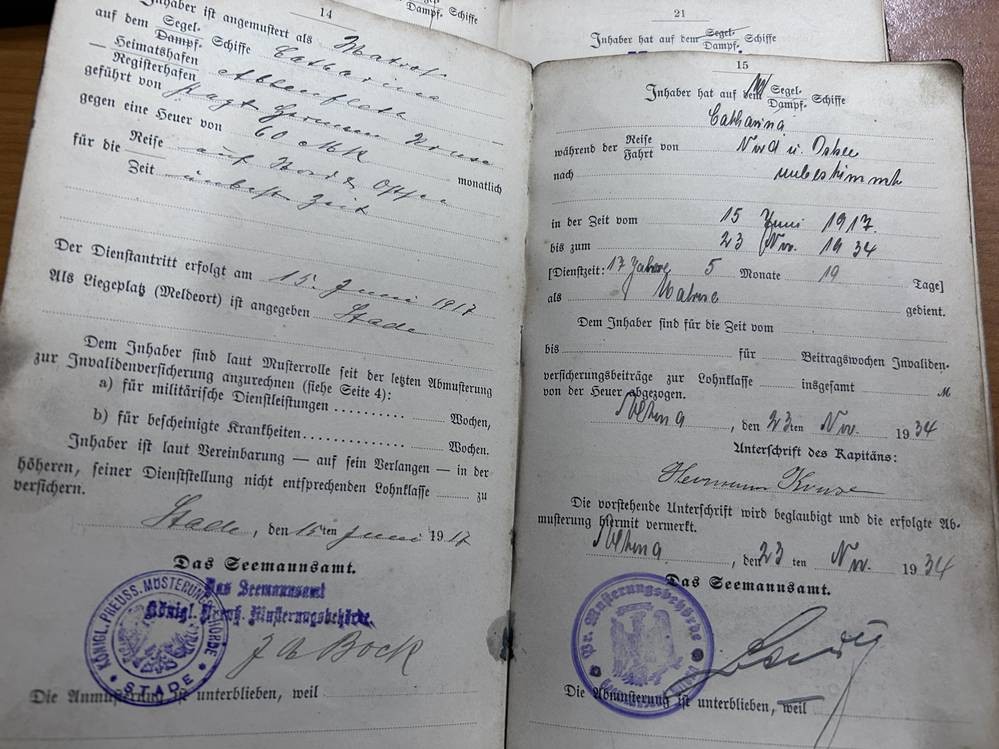 14
Inhaber ist angemustert als Matrose
auf dem Segel-
Dampf- Schiffe Catharina
Heimatshafen
Registerhafen Abbenfleth
geführt von Kapt. Hermann Kruse
gegen eine Heuer von 60 Mk monatlich
für die Reise auf Nord &
Zeit unbest. Zeit
Der Dienstantritt erfolgt am 15. Juni 1917
Als Liegeplatz (Meldeort) ist angegeben Stade
Dem Inhaber sind laut Musterrolle seit der letzten Abmusterung
zur Invalidenversicherung anzurechnen (siehe Seite 4):
a) für militärische Dienstleistungen .......... Wochen,
b) für bescheinigte Krankheiten............. Wochen.
Inhaber ist laut Vereinbarung — auf sein Verlangen — in der
höheren, seiner Dienststellung nicht entsprechenden Lohnklasse ........ zu
versichern.
Stade, den 15ten Juni 1917
Das Seemannsamt.
Das Seemannsamt
Königl. Preuß. Musterungsbehörde.
KÖNIGL. PREUSS. MUSTERUNGSBEHÖRDE
STADE
Bock
Die Anmusterung ist unterblieben, weil
Dampf- Schiffe
21
Inhaber hat auf dem Segel-
Dampf- Schiffe
15
Inhaber hat auf dem Segel-
Dampf- Schiffe
Catharina
während der Reise
Fahrt von Nord u. Ostsee
nach unbestimmt
in der Zeit vom 15 Juni 1917.
bis zum 23 Nov. 1934
[Dienstzeit: 17 Jahre 5 Monate 19 Tage]
als Matrose gedient.
Dem Inhaber sind für die Zeit vom
bis für Beitragswochen Invaliden-
versicherungsbeiträge zur Lohnklasse insgesamt M
von der Heuer abgezogen.
, den 23ten Nov. 1934
Unterschrift des Kapitäns:
Hermann Kruse
Die vorstehende Unterschrift wird beglaubigt und die erfolgte Ab-
musterung hiermit vermerkt.
, den 23 ten Nov. 1934
Das Seemannsamt.
Pr. Musterungsbehörde
Die Abmusterung ist unterblieben, weil